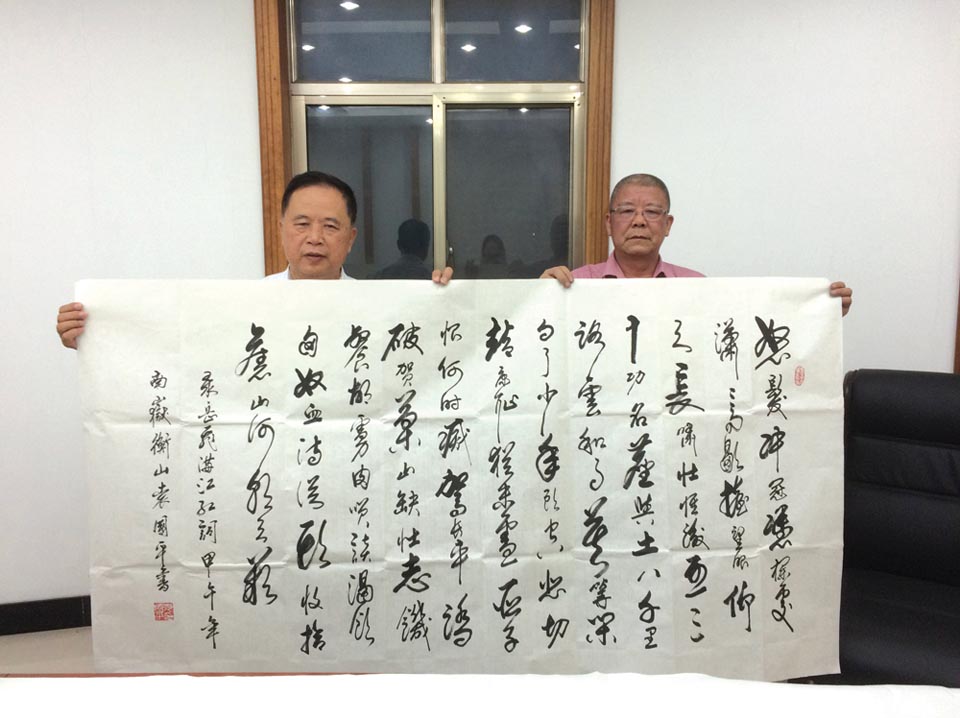 怒髮冲冠憑欄處
瀟瀟雨歇擡望眼仰
天長嘯壯懷激烈三
十功名塵與土八千里
路雲和月莫等閑
白了少年頭空悲切
靖康耻猶未雪臣子
恨何時滅駕長車踏
破賀蘭山缺壯志饑
餐胡虜肉笑談渴飲
匈奴血待從頭收拾
舊山河朝天闕
录岳飛满江红詞甲午年
南嶽衡山袁國平書